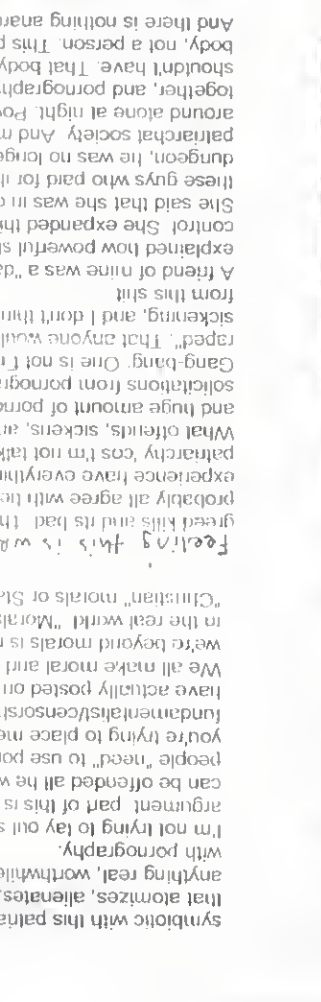 symbiotic with this patria
that atomizes, alienates,
anything real, worthwhile
with pornography.
I'm not trying to lay out s
argument part of this is
can be offended all he w
people "need" to use por
you're trying to place me
fundamentalist/censorst
have actually posted on
We all make moral and
we're beyond morals is r
in the real world "Morals
"Christian" morals or Sta
Feeling this is wa
greed kills and its bad th
probably all agree with he
experience have everythin
patriarchy cos I'm not talk
What offends, sickens, an
and huge amount of porno
solicitations from pornogra
Gang-bang. One is not Fr
raped". That anyone woul
sickening, and I don't thin
from this shit
A friend of mine was a "da
explained how powerful sh
control She expanded thi
She said that she was in c
these guys who paid for th
dungeon, he was no longe
patriarchal society And m
around alone at night. Pow
together, and pornography
shouldn't have. That body
body, not a person. This p
And there is nothing anare